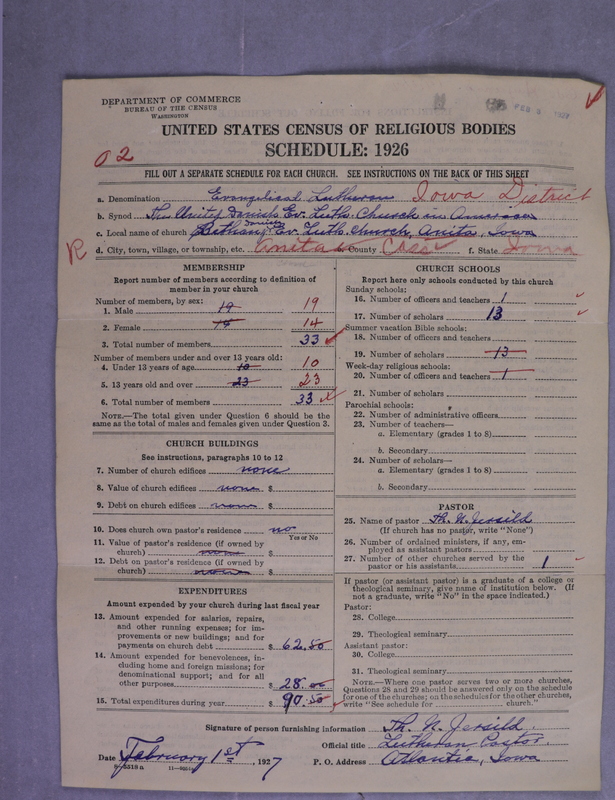 DEPARTMENT OF COMMERCE
BUREAU OF THE CENSUS
WASHINGTON
UNITED STATES CENSUS OF RELIGIOUS BODIES
SCHEDULE: 1926
02
FILL OUT A SEPARATE SCHEDULE FOR EACH CHURCH. SEE INSTRUCTIONS ON THE BACK OF THIS SHEET
a. Denomination Evangelical Lutheran Iowa District
b. Synod The United Danish Ev. Luth. Church in America
c. Local name of church Bethany Ev. Luth. Church, Anita, Iowa
R d. City, town, village, or township, etc. Anita e. County Cass f. State Iowa
MEMBERSHIP
Report number of members according to definition of
member in your church
Number of members, by sex:
1. Male 19 19
2. Female 14 14
3. Total number of members 33
Number of members under and over 13 years old:
4. Under 13 years of age 10 10
5. 13 years old and over 23 23
6. Total number of members 33
NOTE.—The total given under Question 6 should be the
same as the total of males and females given under Question 3.
CHURCH BUILDINGS
See instructions, paragraphs 10 to 12
7. Number of church edifices none
8. Value of church edifices none $
9. Debt on church edifices none $
10. Does church own pastor's residence no
Yes or No
11. Value of pastor's residence (if owned by
church) none $
12. Debt on pastor's residence (if owned by
church) none $
EXPENDITURES
Amount expended by your church during last fiscal year
13. Amount expended for salaries, repairs,
and other running expenses; for im-
provements or new buildings; and for
payments on church debt $ 62.50
14. Amount expended for benevolences, in-
cluding home and foreign missions; for
denominational support; and for all
other purposes $ 28.00
15. Total expenditures during year $ 90.50
CHURCH SCHOOLS
Report here only schools conducted by this church
Sunday schools:
16. Number of officers and teachers 1
17. Number of scholars 13
Summer vacation Bible schools:
18. Number of officers and teachers
19. Number of scholars 13
Week-day religious schools:
20. Number of officers and teachers 1
21. Number of scholars
Parochial schools:
22. Number of administrative officers
23. Number of teachers—
a. Elementary (grades 1 to 8)
b. Secondary
24. Number of scholars—
a. Elementary (grades 1 to 8)
b. Secondary
PASTOR
25. Name of pastor Th. N. Jersild
(If church has no pastor, write "None")
26. Number of ordained ministers, if any, em-
ployed as assistant pastors
27. Number of other churches served by the
pastor or his assistants 1
If pastor (or assistant pastor) is a graduate of a college or
theological seminary, give name of institution below. (If
not a graduate, write "No" in the space indicated.)
Pastor:
28. College
29. Theological seminary
Assistant pastor:
30. College
31. Theological seminary
NOTE.—Where one pastor serves two or more churches,
Questions 28 and 29 should be answered only on the schedule
for one of the churches; on the schedules for the other churches,
write "See schedule for church."
Signature of person furnishing information Th. N. Jersild
Official title Lutheran Pastor
Date February 1st, 1927 P. O. Address Atlantic, Iowa